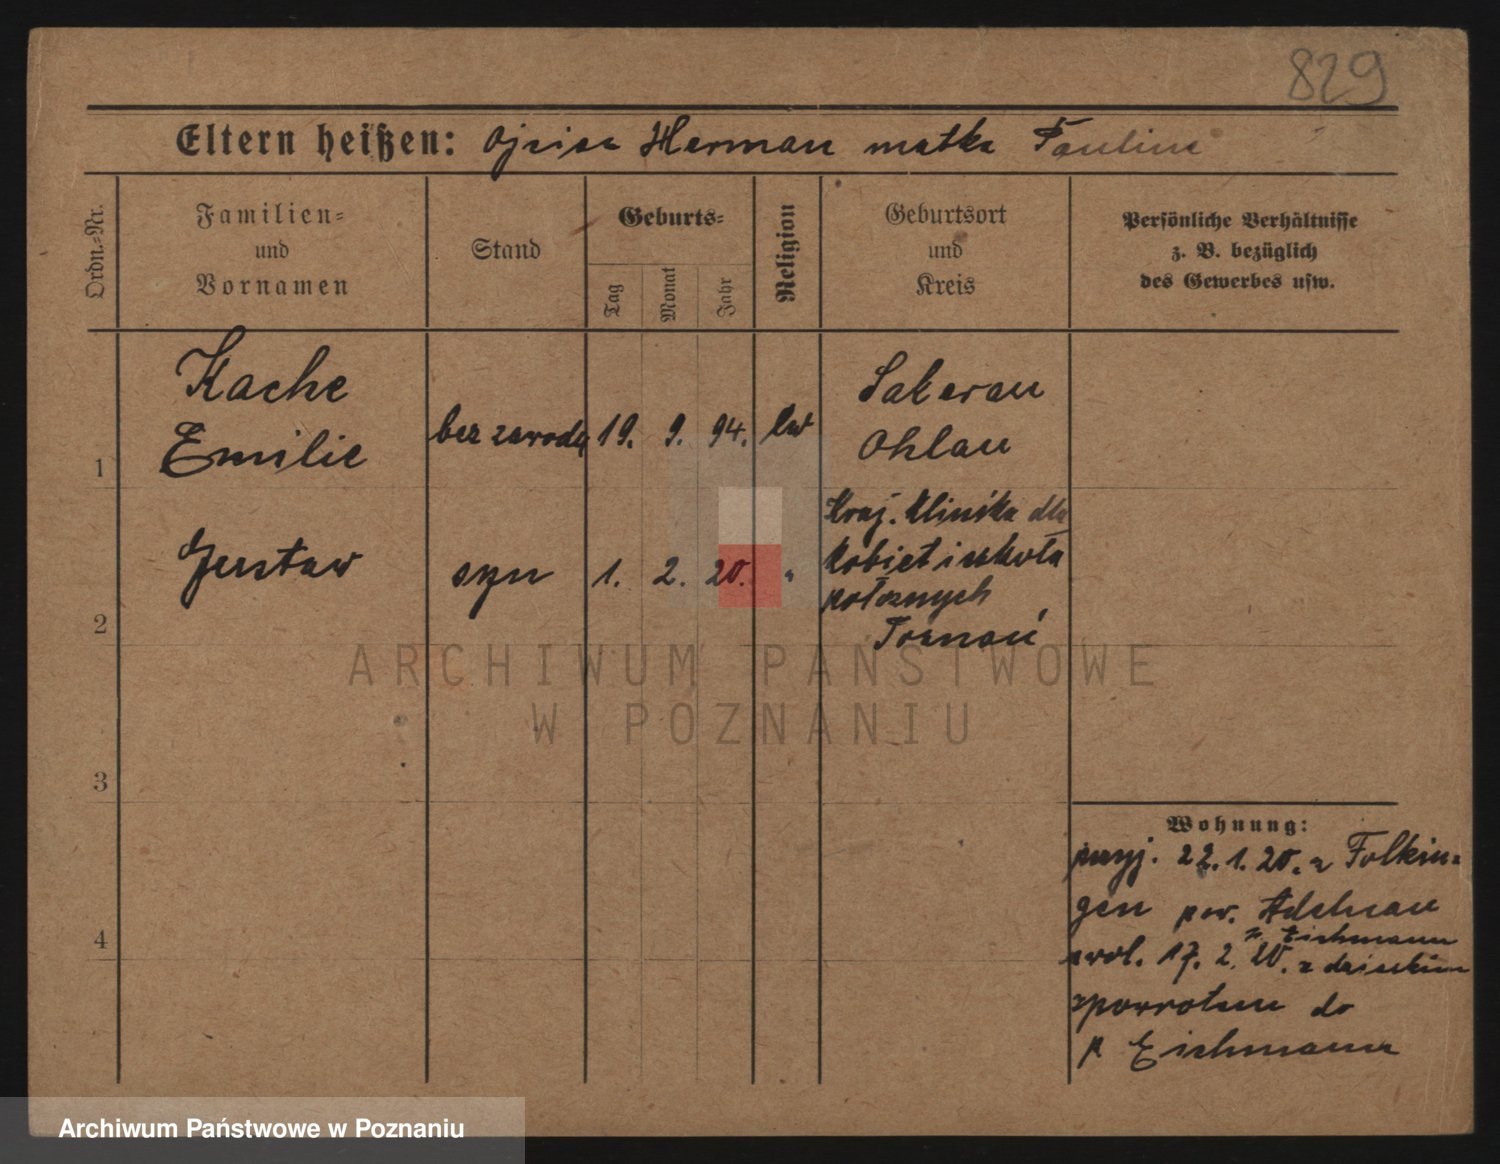 829
Eltern heißen: Ojciec Herman matka Pauline
Ordn.=Nr.
Familien=
und
Vornamen
Stand
Geburts=
Tag
Monat
Jahr
Religion
Geburtsort
und
Kreis
Persönliche Verhältnisse
z. B. bezüglich
des Gewerbes usw.
Kache
Emilie
1
bez zawodu
19. 9. 94.
Sakerau
Ohlau
Gustaw
2
syn
1. 2. 20. "
Kraj. Klinika dla
kobiet i szkoła
położnych
Poznań
3
4
Wohnung:
przyj. 22.1.20. z Folkin=
gen pow. Adelnau
p. Eichmann
zwol. 17. 2. 20. z dzieckiem
zpowrotem do
p Eichmann
ARCHIWUM PAŃSTWOWE
W POZNANIU
Archiwum Państwowe w Poznaniu